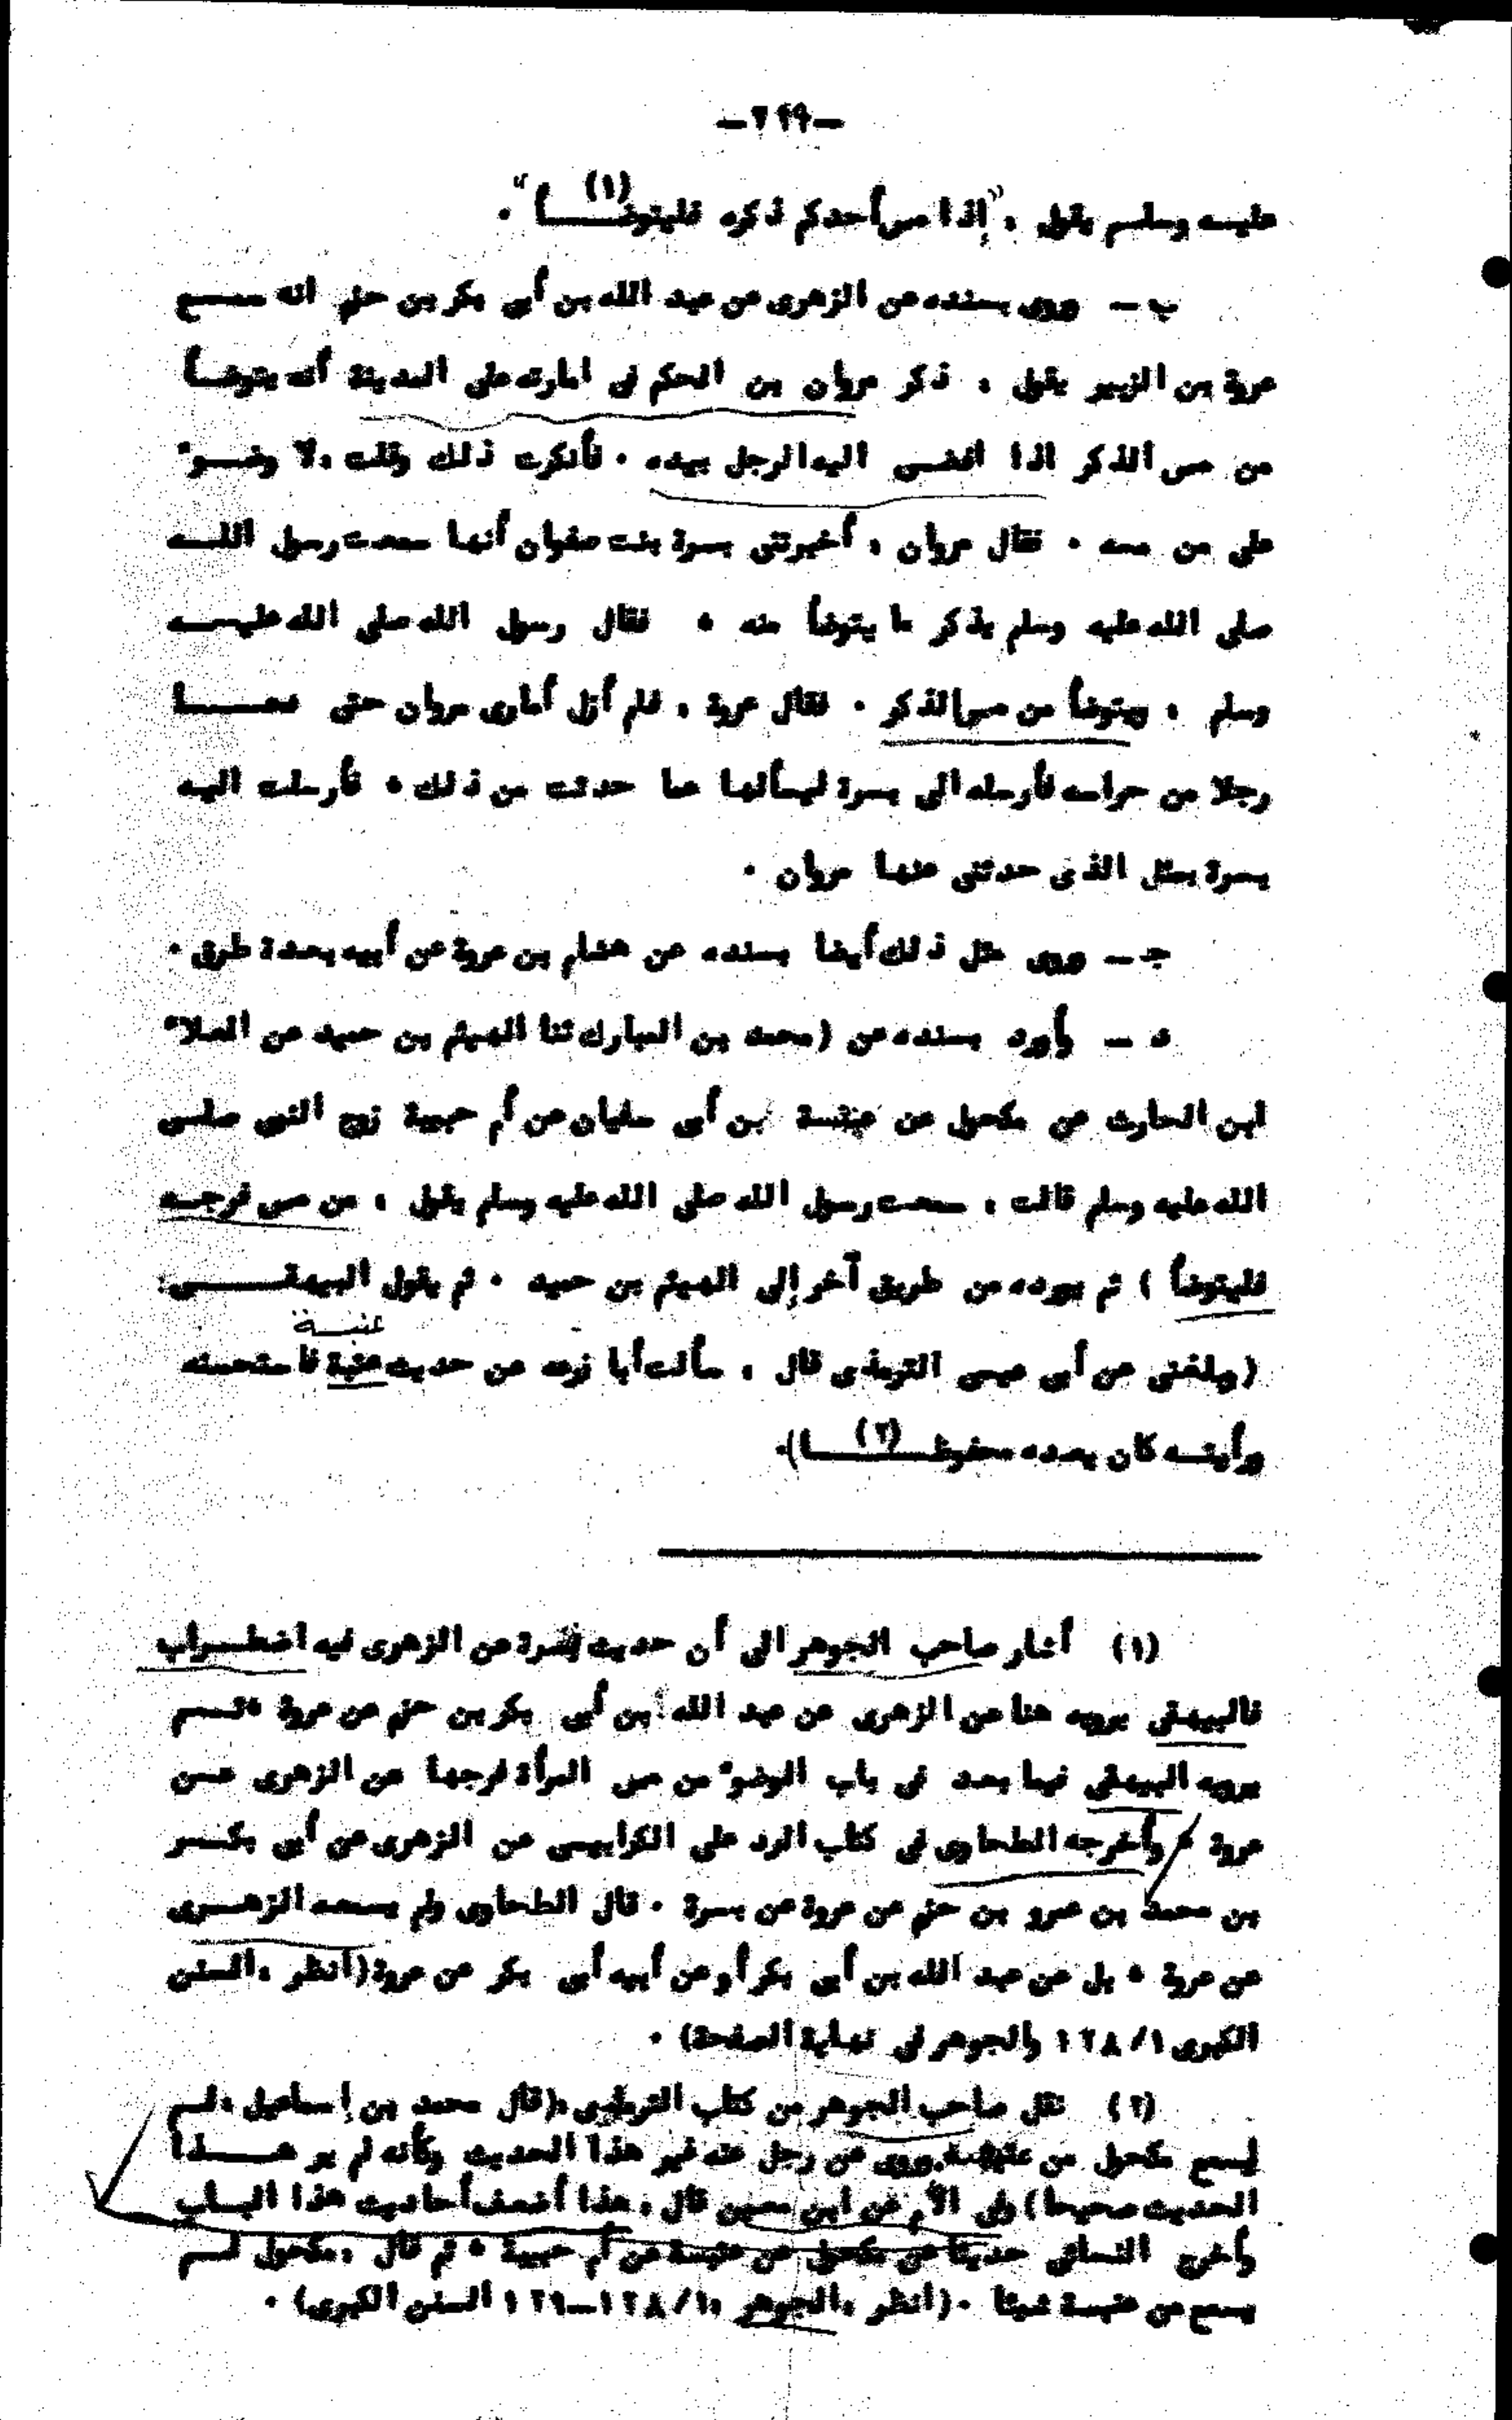 -٢٩٩-
عليـه وسلـم يقول ، "إذا مس أحدكم ذكره فليتوضـــأ(١)" .
ب - وروى بسنده عن الزهرى عن عبد الله بن أبى بكر بن حزم انه سمـــع
عروة بن الزبير يقول ، ذكر مروان بن الحكم فى امارته على المدينة أنه يتوضـأ
من مس الذكر اذا افضـى اليه الرجل بيده . فأنكرت ذلك وقلت ،لا وضــوء
على من مسه . فقال مروان ، أخبرتنى بسرة بنت صفوان أنها سمعت رسول اللــه
صلى الله عليه وسلم يذكر ما يتوضأ منه ، فقال رسول الله صلى الله عليـــه
وسلم ، ويتوضأ من مس الذكر . فقال عروة ، فلم أزل أمارى مروان حتى دعـــا
رجلا من حراسه فأرسله الى بسرة ليسألها عما حدثت من ذلك ، فأرسلت اليه
بسرة بمثل الذى حدثنى عنها مروان .
جـ - وروى مثل ذلك أيضا بسنده عن هشام بن عروة عن أبيه بعدة طرق .
د - وأورد بسنده عن (محمد بن المبارك ثنا الهيثم بن حميد عن العلاء
ابن الحارث عن مكحول عن عنبسة بن أبى سفيان عن أم حبيبة زوج النبى صلـى
الله عليه وسلم قالت ، سمعت رسول الله صلى الله عليه وسلم يقول ، من مس فرجــه
فليتوضأ ) ثم يورده من طريق آخر إلى الهيثم بن حميد . ثم يقول البيهقــــى:
عنبسة
(وبلغنى عن أبى عيسى الترمذى قال ، سألت أبا زرعه عن حديث عتبة فاستحسنه
ورأيتـه كان يعده محفوظـــا(٢)).
(١) أشار صاحب الجوهر الى أن حديث بسرة عن الزهرى فيه اضطــراب
فالبيهقى يرويه هنا عن الزهرى عن عبد الله بن أبى بكر بن حزم عن عروة ،ثــم
يرويه البيهقى فيما بعد فى باب الوضوء من مس المرأة فرجها عن الزهرى عــن
عروة ، وأخرجه الطحاوى فى كتاب الرد على الكرابيسى عن الزهرى عن أبى بكـــر
بن محمد بن عمرو بن حزم عن عروة عن بسرة . قال الطحاوى ولم يسمعه الزهــرى
عن عروة ، بل عن عبد الله بن أبى بكر أو عن أبيه أبى بكر عن عروة (أنظر ،السنن
الكبرى ١٢٨/١ والجوهر فى نهاية الصفحة) .
(٢) نقل صاحب الجوهر من كتاب الترمذى ،(قال محمد بن إسماعيل ،لــم
يسمع مكحول من عنبسة وروى عن رجل عنه غير هذا الحديث وكأنه لم ير هـــذا
الحديث صحيحا) وفى الأم عن ابن معين قال ، هذا أضعف أحاديث هذا البــاب
وأخرج النسائى حديثا عن مكحول عن عنبسة عن أم حبيبة ، ثم قال ،مكحول لــم
يسمع من عنبسة شيئا .(انظر ،الجوهر ،١٢٨/١-١٢٩ السنن الكبرى) .